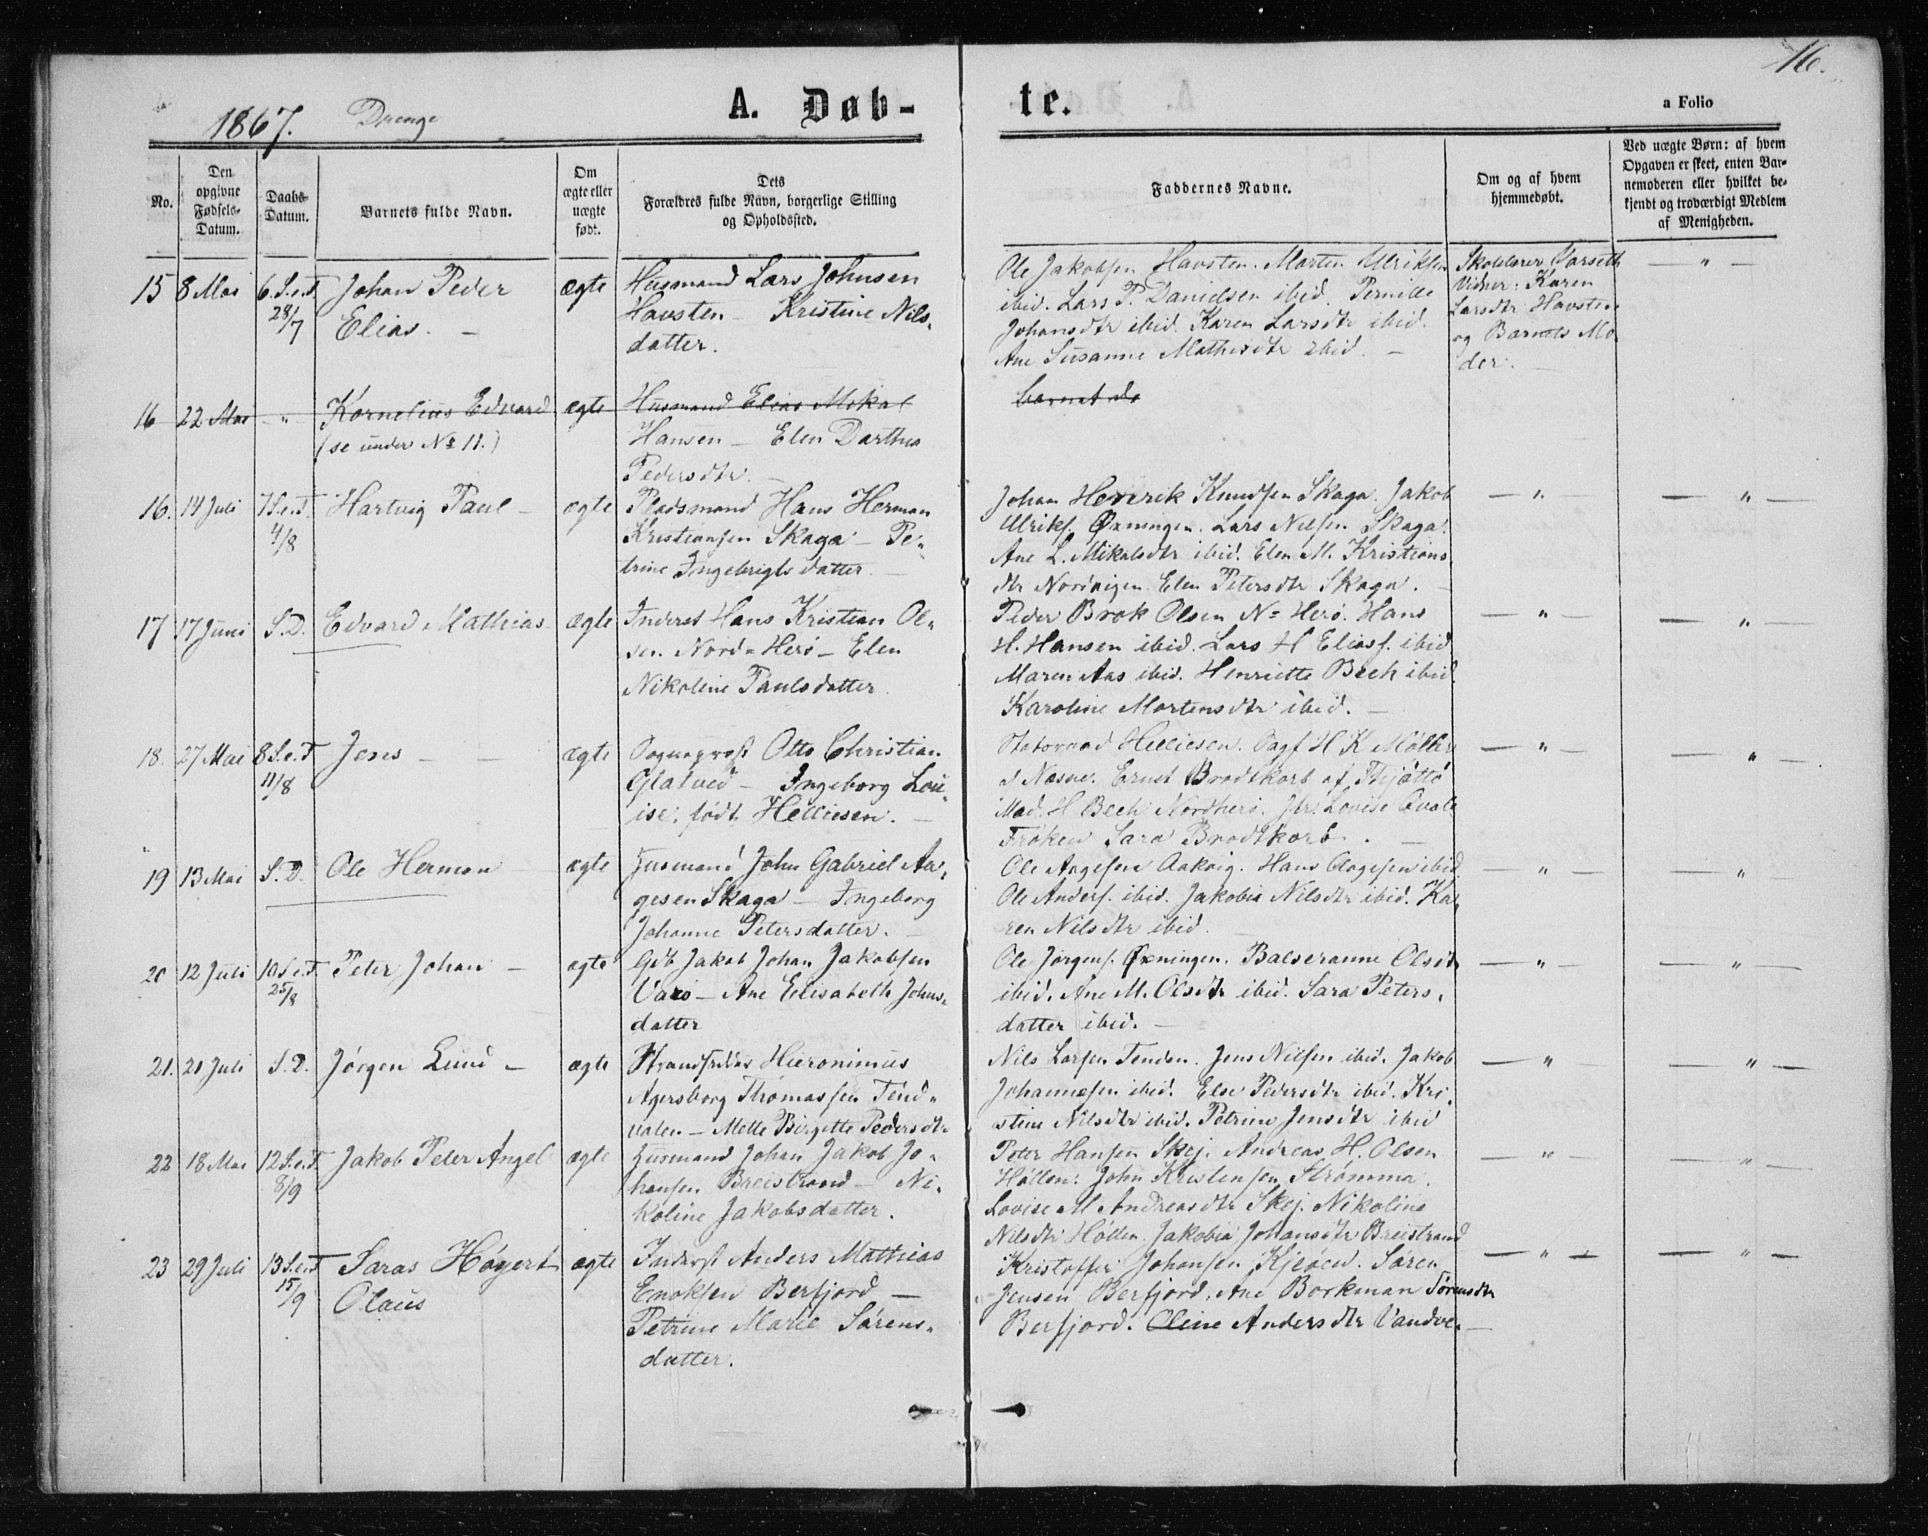 16.
1867. Drenge A. Døb-te. a Folio
No.
Den opgivne Fødsels-Datum.
Daabs-Datum.
Barnets fulde Navn.
Om ægte eller uægte født.
Dets Forældres fulde Navn, borgerlige Stilling og Opholdssted.
Faddernes Navne.
Om og af hvem hjemmedøbt.
Ved uægte Børn: af hvem Opgaven er skeet, enten Barnemoderen eller hvilket bekjendt og troværdigt Medlem af Menigheden.
15 8 Mai 6. S.e.T. 28/7
Johan Peder
Elias. –
ægte
Husmand Lars Johnsen
Havsten – Kristine Nils-
datter.
Ole Jakobsen Havsten. Morten Ulriksen
ibid. Lars P. Danielsen ibid. Pernille
Johansdtr ibid. Karen Larsdtr ibid.
Ane Susanne Mathisdtr ibid. –
Skolelærer Varseth
Vidner: Karen
Larsdtr Havsten
og Barnets Mo-
der.
— " —
16 22 Mai – " –
Kornelius Edvard
(se under No 11.)
ægte
Husmand Elias Mikal
Hansen – Elen Darthea
Pedersdtr. –
barnet do
16. 14 Juli 7 S.e.T. 4/8
Hartvig Paul –
ægte
Pladsmand Hans Herman
Kristiansen Skaga – Pe-
trine Ingebrigtsdatter. –
Johan Henrik Knudsen Skaga. Jakob
Ulriks. Øxningen. Lars Nilsen Skaga.
Ane L. Mikalsdtr ibid. Elen M. Kristians
dtr Nordvigen. Elen Petersdtr Skaga. –
— " —
— " —
17 17 Juni S.D.
Edvard Mathias
ægte
Inderst Hans Kristian Ol-
sen Nord-Herø – Elen
Nikoline Paulsdatter.
Peder Brok Olsen N= Herø. Hans
H. Hansen ibid. Lars H Eliass. ibid
Maren Aas ibid. Henriette Bech ibid.
Karoline Mortensdtr ibid. –
— " —
— " —
18. 27 Mai 8 S.e.T 11/8
Jens – –
ægte
Sogneprest Otto Christian
Glatved – Ingeborg Lou-
ise, født Helliesen. –
Statsraad Helliesen. Sagf H K Møller
Nesne. Ernst Brodtkorb af Thjøttø
Mad. H Bech Nordherø. Jfr. Lovise Qvale
Frøken Sara Brodtkorb. –
— " —
— "
19 13 Mai S.D.
Ole Herman
ægte
Husmand John Gabriel Aa-
gesen Skaga – Ingeborg
Johanne Petersdatter. –
Ole Aagesen Aakvig. Hans Aagesen ibid.
Ole Anders. ibid. Jakobia Nilsdtr ibid. Ka-
ren Nilsdtr ibid.
— " —
— "
20 12 Juli 10 S.e.T 25/8
Peter Johan –
ægte
Gdb Jakob Johan Jakobsen
– Ane Elisabeth Johns-
datter
Ole Jørgens. Øxningen. Balseranne Olsdtr
ibid. Ane M. Olsdtr ibid. Sara Peters-
datter ibid. –
— " —
— " —
21. 21 Juli S.D.
Jørgen Lund –
ægte
Strandsidder Hieronimus
Agersborg Thomassen Tend-
valen – Mette Birgette Pedersdtr
Nils Larsen Tenden. Jens Nilsen ibid. Jakob
Johannesen ibid. Else Pedersdtr ibid. Kri-
stine Nilsdtr ibid. Petrine Jensdtr ibid
— " —
— " —
22 18 Mai 12 S.e.T 8/9
Jakob Peter Angel
ægte
Husmand Johan Jakob Jo-
hansen Breistrand – Ni-
koline Jakobsdatter.
Peter Hansen Skej. Andreas H. Olsen
Høllen. John Kristensen Strømma.
Lovise M Andreasdtr Skej. Nikoline
Nilsdtr Høllen. Jakobia Johansdtr Breistrand
— " —
— " —
23 29 Juli 13 S.e.T 15/9
Saras Høyert
Olaus
ægte
Inderst Anders Mathias
Enoksen Berfjord –
Petrine Marie Sørens-
datter.
Kristoffer Johansen . Søren
Jensen Berfjord. Ane Borkman Sørensdtr
Berfjord. Oline Andersdtr Vandve. –
— " —
— " —